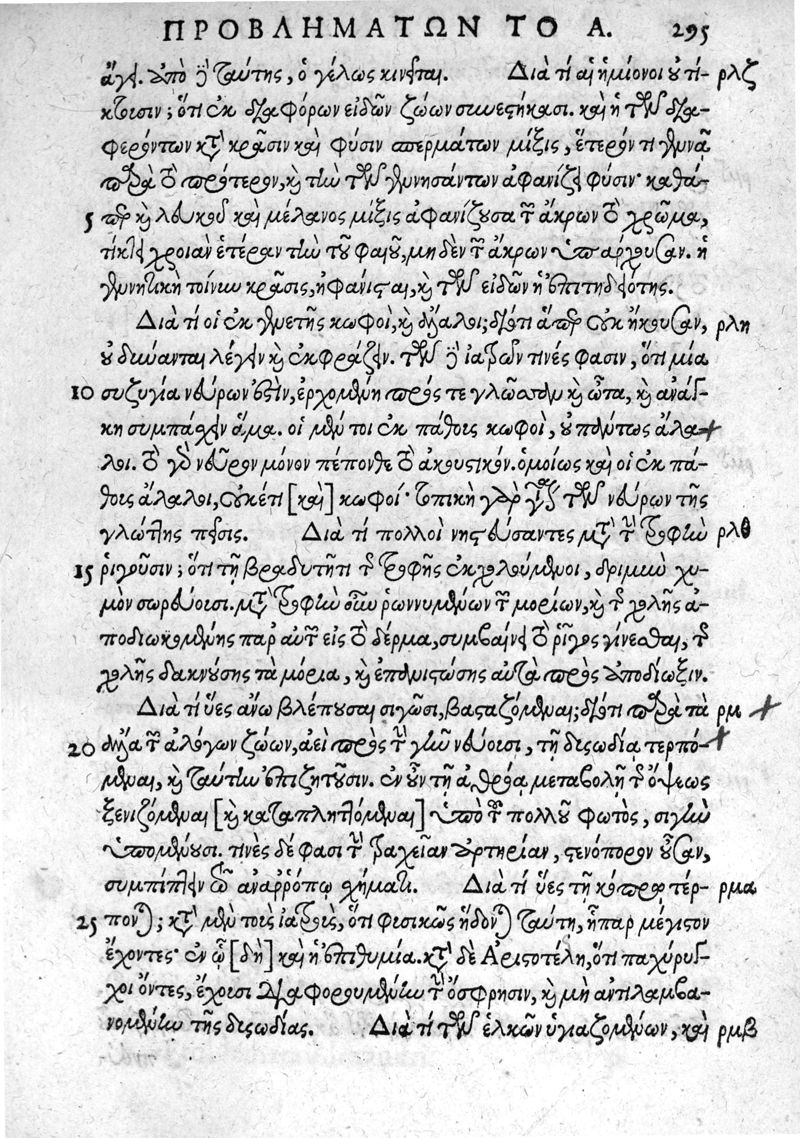 ΠΡΟΒΛΗΜΑΤΩΝ ΤΟ Α. 295
ἄγει. ἀπὸ δὲ ταύτης, ὁ γέλως κινεῖται. Διὰ τί αἱ ἡμίονοι οὐ τί- ρλζ
κτουσιν; ὅτι ἐκ διαφόρων εἰδῶν ζώων συνεστήκασι. καὶ ἡ τῶν δια-
φερόντων κατὰ κρᾶσιν καὶ φύσιν σπερμάτων μίξις, ἕτερόν τι γεννᾷ
παρὰ τὸ πρότερον, καὶ τὴν τῶν γεννησάντων ἀφανίζει φύσιν· καθά-
5 περ καὶ λευκοῦ καὶ μέλανος μίξις ἀφανίζουσα τῶν ἄκρων τὸ χρῶμα,
τίκτει χροιὰν ἑτέραν τὴν τοῦ φαιοῦ, μηδὲν τῶν ἄκρων ὑπάρχουσαν. ἡ
γεννητικὴ τοίνυν κρᾶσις, ἠφάνισται, καὶ τῶν εἰδῶν ἡ ἐπιτηδειότης.
Διὰ τί οἱ ἐκ γενετῆς κωφοὶ, καὶ ἄλαλοι; διότι ἅπερ οὐκ ἤκουσαν, ρλη
οὐ δύνανται λέγειν καὶ ἐκφράζειν. τῶν δὲ ἰατρῶν τινές φασιν, ὅτι μία
10 συζυγία νεύρων ἐστὶν, ἐρχομένη πρός τε γλῶσσαν καὶ ὦτα, καὶ ἀνάγ-
κη συμπάσχειν ἅμα. οἱ μέν τοι ἐκ πάθους κωφοὶ, οὐ πάντως ἄλα-
λοι. τὸ γὰρ νεῦρον μόνον πέπονθε τὸ ἀκουστικόν. ὁμοίως καὶ οἱ ἐκ πά-
θους ἄλαλοι, οὐκέτι [καὶ] κωφοί· τοπικὴ γὰρ γέγονε τῶν νεύρων τῆς
γλώττης πεῖσις. Διὰ τί πολλοὶ νηστεύσαντες μετὰ τὴν τροφὴν ρλθ
15 ῥιγοῦσιν; ὅτι τῇ βραδυτῆτι τῆς τροφῆς ἐκχολούμενοι, δριμὺν χυ-
μὸν σωρεύουσι. μετὰ τροφὴν οὖν ῥωννυμένων τῶν μορίων, καὶ τῆς χολῆς ἀ-
ποδιωκομένης παρ' αὐτῶν εἰς τὸ δέρμα, συμβαίνει τὸ ῥῖγος γίνεσθαι, τῆς
χολῆς δακνούσης τὰ μόρια, καὶ ἐπαγούσης αὐτὰ πρὸς ἀποδίωξιν.
Διὰ τί ὕες ἄνω βλέπουσαι σιγῶσι, βασταζόμεναι; διότι παρὰ τὰ ρμ
20 ἄλλα τῶν ἀλόγων ζώων, ἀεὶ πρὸς τὴν γῆν νεύουσι, τῇ δυσωδίᾳ τερπό-
μεναι, καὶ ταύτην ἐπιζητοῦσιν. ἐν οὖν τῇ ἀθρόᾳ μεταβολῇ τῆς ὄψεως
ξενιζόμεναι [καὶ καταπληττόμεναι] ὑπὸ τοῦ πολλοῦ φωτὸς, σιγὴν
ὑπομένουσι. τινὲς δέ φασι τὴν τραχεῖαν ἀρτηρίαν, στενόπορον οὖσαν,
συμπίπτειν τῷ ἀναῤῥόπῳ σχήματι. Διὰ τί ὕες τῇ κόπρῳ τέρ- ρμα
25 πονται; κατὰ μὲν τοὺς ἰατροὺς, ὅτι φυσικῶς ἥδονται ταύτῃ, ἧπαρ μέγιστον
ἔχοντες· ἐν ᾧ [δὴ] καὶ ἡ ἐπιθυμία. κατὰ δὲ Ἀριστοτέλη, ὅτι παχύρυγ-
χοι ὄντες, ἔχουσι διαφορουμένην τὴν ὄσφρησιν, καὶ μὴ ἀντιλαμβα-
νομένην τῆς δυσωδίας. Διὰ τί τῶν ἑλκῶν ὑγιαζομένων, καὶ ρμβ